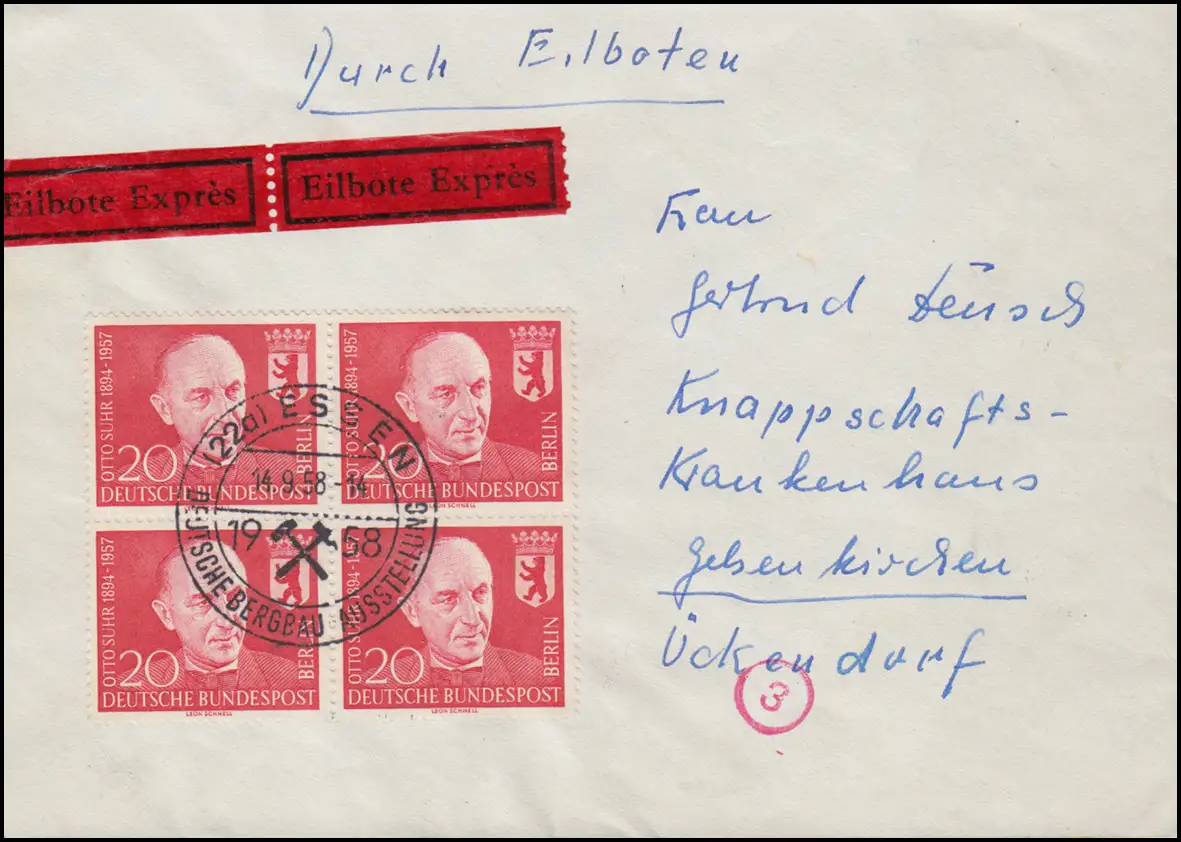 Durch Eilboten
Eilbote Exprès
Eilbote Exprès
Frau
Gertrud
Knappschafts-
Krankenhaus
Gelsenkirchen
Ückendorf
3
OTTO SUHR 1894-1957
20
BERLIN
DEUTSCHE BUNDESPOST
LEON SCHNELL
OTTO SUHR 1894-1957
20
BERLIN
DEUTSCHE BUNDESPOST
LEON SCHNELL
OTTO SUHR 1894-1957
20
BERLIN
DEUTSCHE BUNDESPOST
LEON SCHNELL
OTTO SUHR 1894-1957
20
BERLIN
DEUTSCHE BUNDESPOST
LEON SCHNELL
(22a) ESSEN
14.9.58-14
19 58
DEUTSCHE BERGBAU AUSSTELLUNG